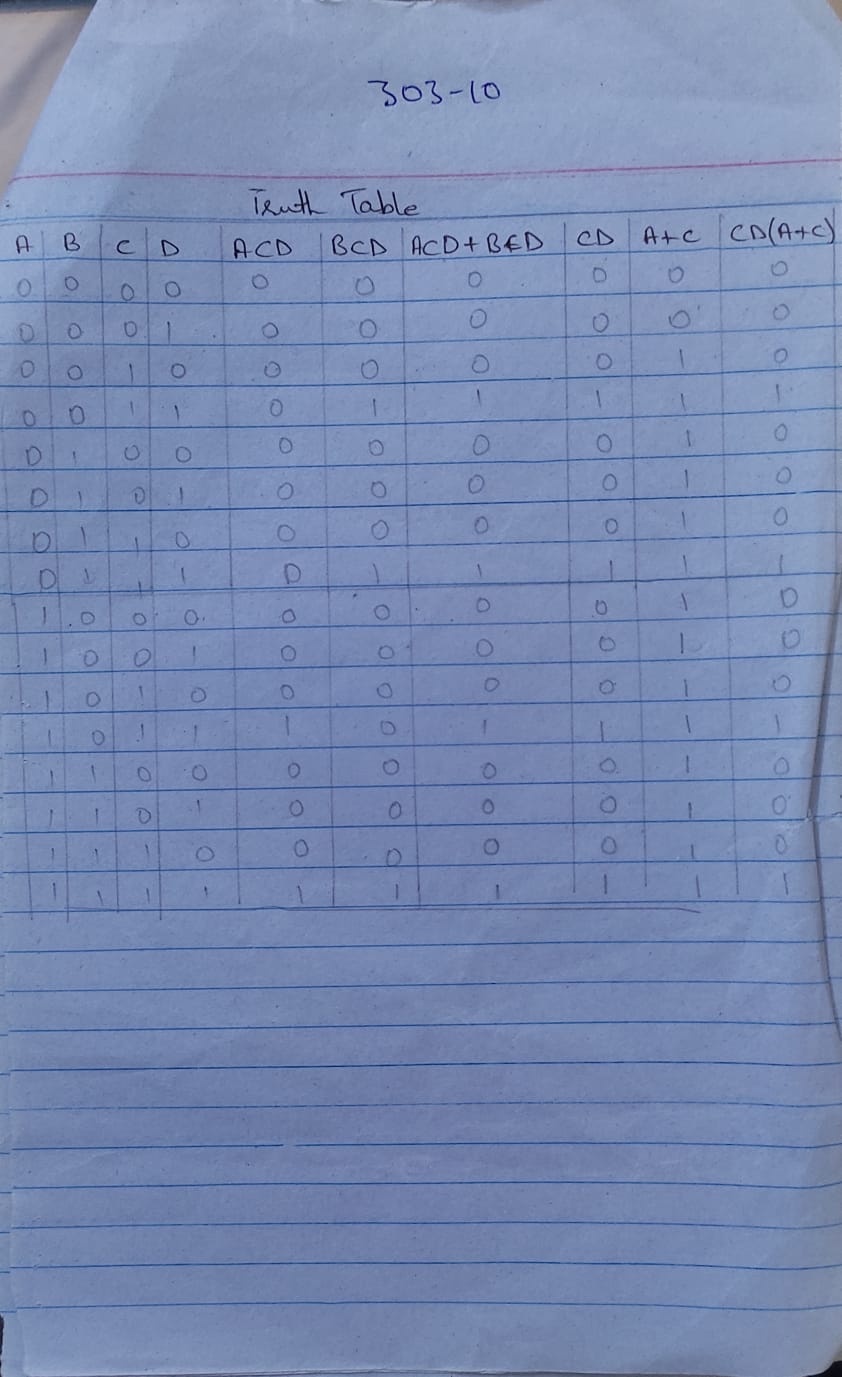 303-10
Truth Table
A B C D ACD BCD ACD+BCD CD A+C CD(A+C)
0 0 0 0 0 0 0 0 0 0
0 0 0 1 0 0 0 0 0 0
0 0 1 0 0 0 0 0 1 0
0 0 1 1 0 1 1 1 1 1
0 1 0 0 0 0 0 0 1 0
0 1 0 1 0 0 0 0 1 0
0 1 1 0 0 0 0 0 1 0
0 1 1 1 0 1 1 1 1 1
1 0 0 0 0 0 0 0 1 0
1 0 0 1 0 0 0 0 1 0
1 0 1 0 0 0 0 0 1 0
1 0 1 1 1 0 1 1 1 1
1 1 0 0 0 0 0 0 1 0
1 1 0 1 0 0 0 0 1 0
1 1 1 0 0 0 0 0 1 0
1 1 1 1 1 1 1 1 1 1